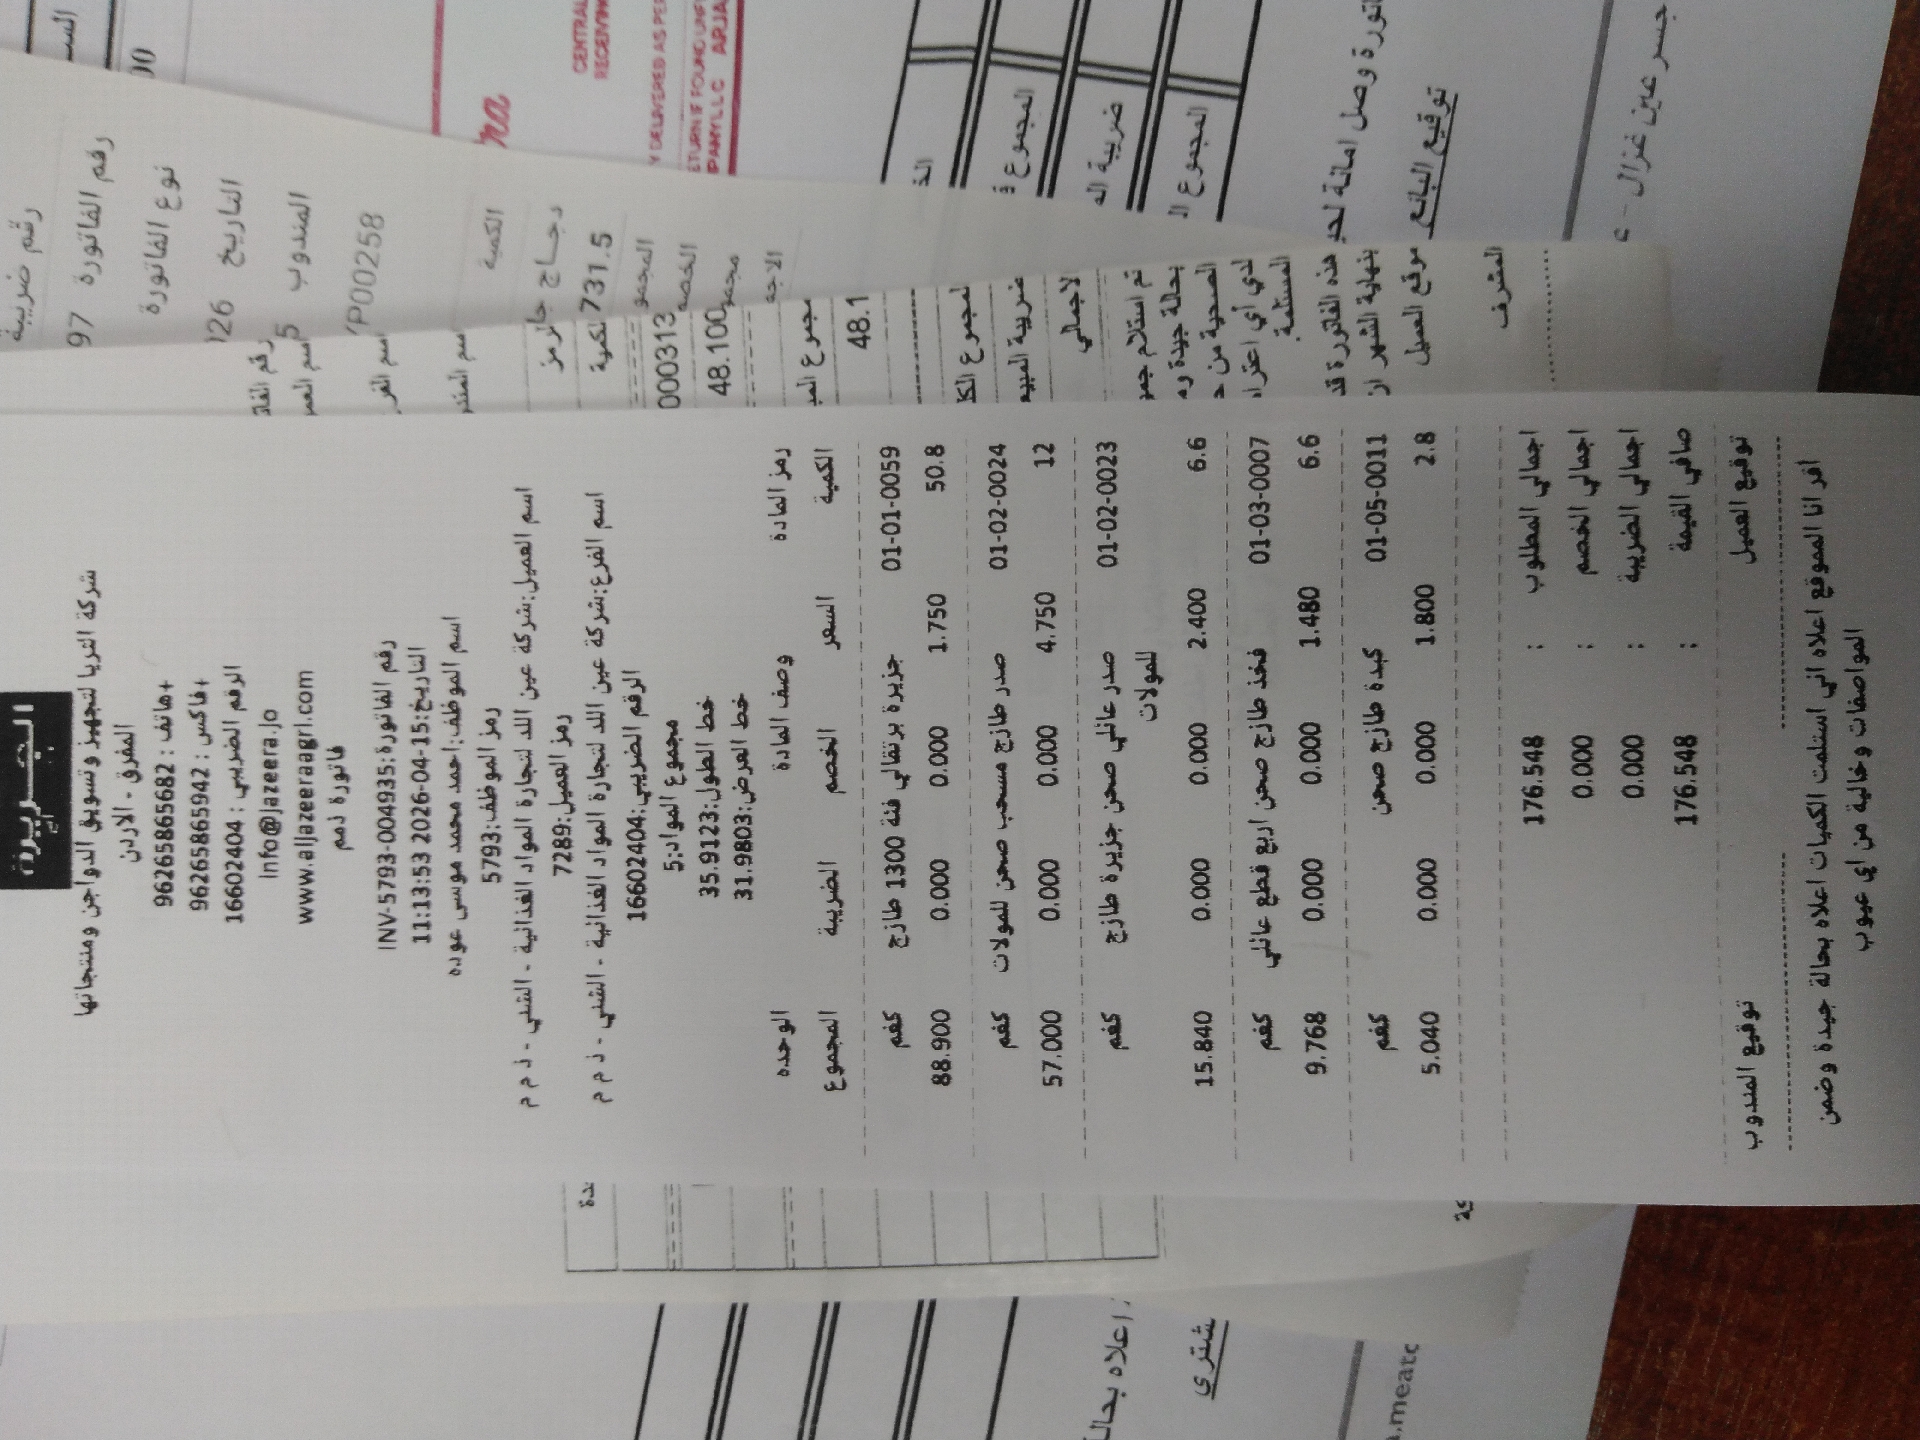 الجزيرة
شركة الثريا لتجهيز وتسويق الدواجن ومنتجاتها
المفرق - الاردن
+هاتف : 96265865682
+فاكس : 96265865942
الرقم الضريبي : 16602404
Info@Jazeera.Jo
www.alJazeeraagri.com
فاتورة ذمم
رقم الفاتورة:INV-5793-004935
التاريخ:2026-04-15 11:13:53
اسم الموظف:احمد محمد موسى عوده
رمز الموظف:5793
اسم العميل:شركة عين اللد لتجارة المواد الغذائية - الشني - ذ م م
رمز العميل:7289
اسم الفرع:شركة عين اللد لتجارة المواد الغذائية - الشني - ذ م م
الرقم الضريبي:16602404
مجموع المواد:5
خط الطول:35.9123
خط العرض:31.9803
رمز المادة وصف المادة الوحده
الكمية السعر الخصم الضريبة المجموع
01-01-0059 جزيرة برتقالي فئة 1300 طازج كغم
50.8 1.750 0.000 0.000 88.900
01-02-0024 صدر طازج مسحب صحن للمولات كغم
12 4.750 0.000 0.000 57.000
01-02-0023 صدر عائلي صحن جزيرة طازج كغم
للمولات
6.6 2.400 0.000 0.000 15.840
01-03-0007 فخذ طازج صحن اربع قطع عائلي كغم
6.6 1.480 0.000 0.000 9.768
01-05-0011 كبدة طازج صحن كغم
2.8 1.800 0.000 0.000 5.040
اجمالي المطلوب : 176.548
اجمالي الخصم : 0.000
اجمالي الضريبة : 0.000
صافي القيمة : 176.548
توقيع العميل توقيع المندوب
اقر انا الموقع اعلاه اني استلمت الكميات اعلاه بحالة جيدة وضمن
المواصفات وخالية من اي عيوب
رقم ضريبة
رقم الفاتورة 97
نوع الفاتورة
التاريخ 126
المندوب
P00258
الكمية
دجاج جائرمز
731.5
000313
48.100
48.1
الاجمالي
المستلمة
موقع العميل
المشرف
CENTRAL
Y DELIVERED AS PER
ETURN IF FOUND UNF
PANY L.L.C
المجموع
ضريبة
المجموع
توقيع البائع
جسر عين غزال
اعلاه بحال
.meatc